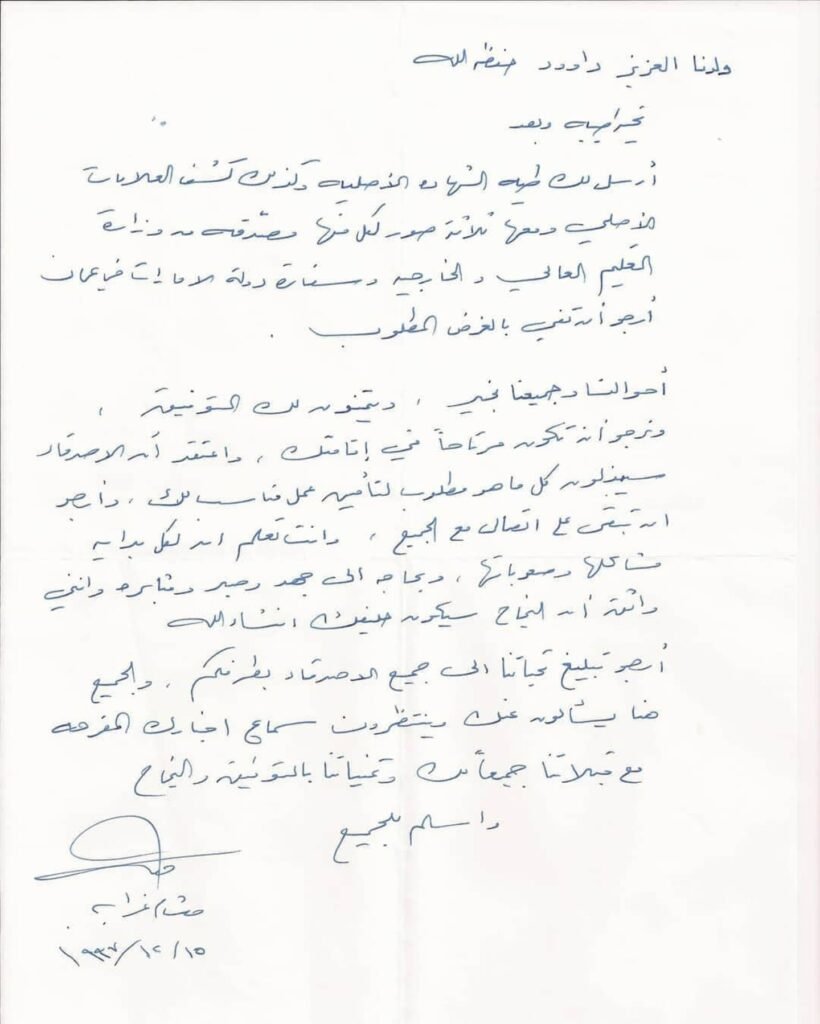 ولدنا العزيز داوود حفظه الله
تحية طيبة وبعد
أرسل لك طيه الشهادة الأصلية وكذلك كشف العلامات
الأصلي ومعها ثلاثة صور لكل منها مصدقه من وزارة
التعليم العالي والخارجيه وسفارة دولة الامارات في عمان
أرجو أن تفي بالغرض المطلوب .
أحوالنا وجميعنا بخير ، ويتمنون لك التوفيق ،
ونرجو أن تكون مرتاحاً في إقامتك ، واعتقد أن الاصدقاء
سيبذلون كل ما هو مطلوب لتأمين عمل مناسب لك ، وأرجو
ان تبقى على اتصال مع الجميع ، وانت تعلم ان لكل بدايه
مشاكلها وصعوباتها ، وبحاجه الى جهد وصبر ومثابره وانني
واثق أن النجاح سيكون حليفك انشاء الله
أرجو تبليغ تحياتنا الى جميع الاصدقاء بطرفكم ، والجميع
هنا يسألون عنك وينتظرون سماع اخبارك المفرحه
مع قبلاتنا جميعاً لك وتمنياتنا بالتوفيق والنجاح
واسلم للجميع
١٩٩٧/١٢/١٥